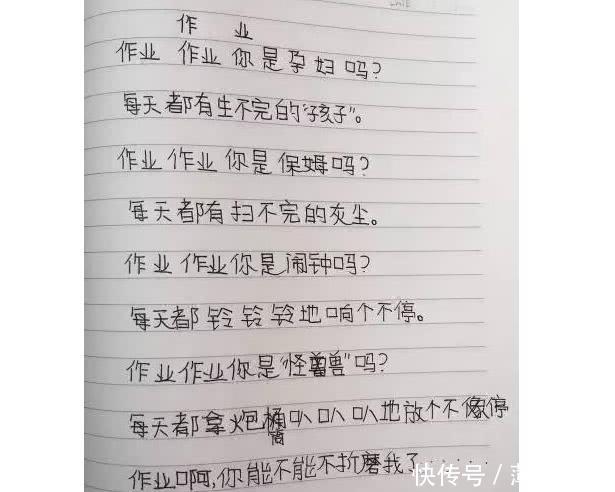 作 业
作业 作业 你是孕妇吗?
每天都有生不完的“孩子”。
作业作业你是保姆吗?
每天都有扫不完的灰尘。
作业作业你是闹钟吗?
每天都铃铃铃地响个不停。
作业作业你是“怪兽”吗?
每天都拿炮筒叭叭叭地放个不停
作业啊,你能不能不折磨我了······
快传号/